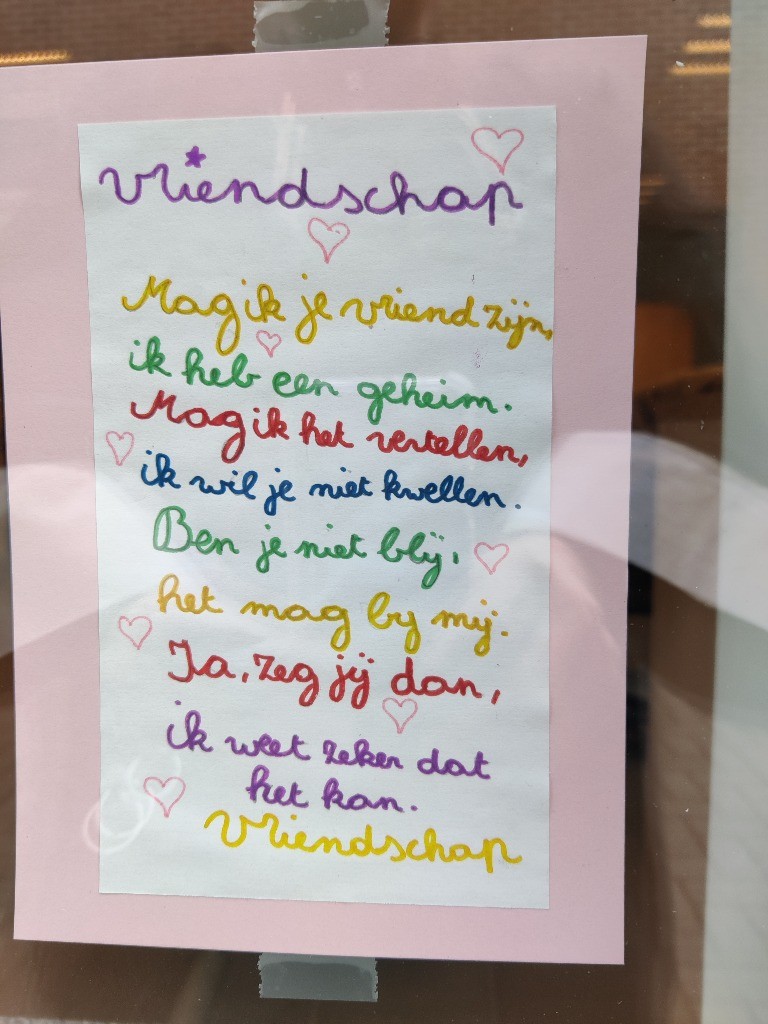 vriendschap
Mag ik je vriend zijn,
ik heb een geheim.
Mag ik het vertellen,
ik wil je niet kwellen.
Ben je niet blij,
het mag by mij.
Ja, zeg jij dan,
ik weet zeker dat
het kan.
Vriendschap